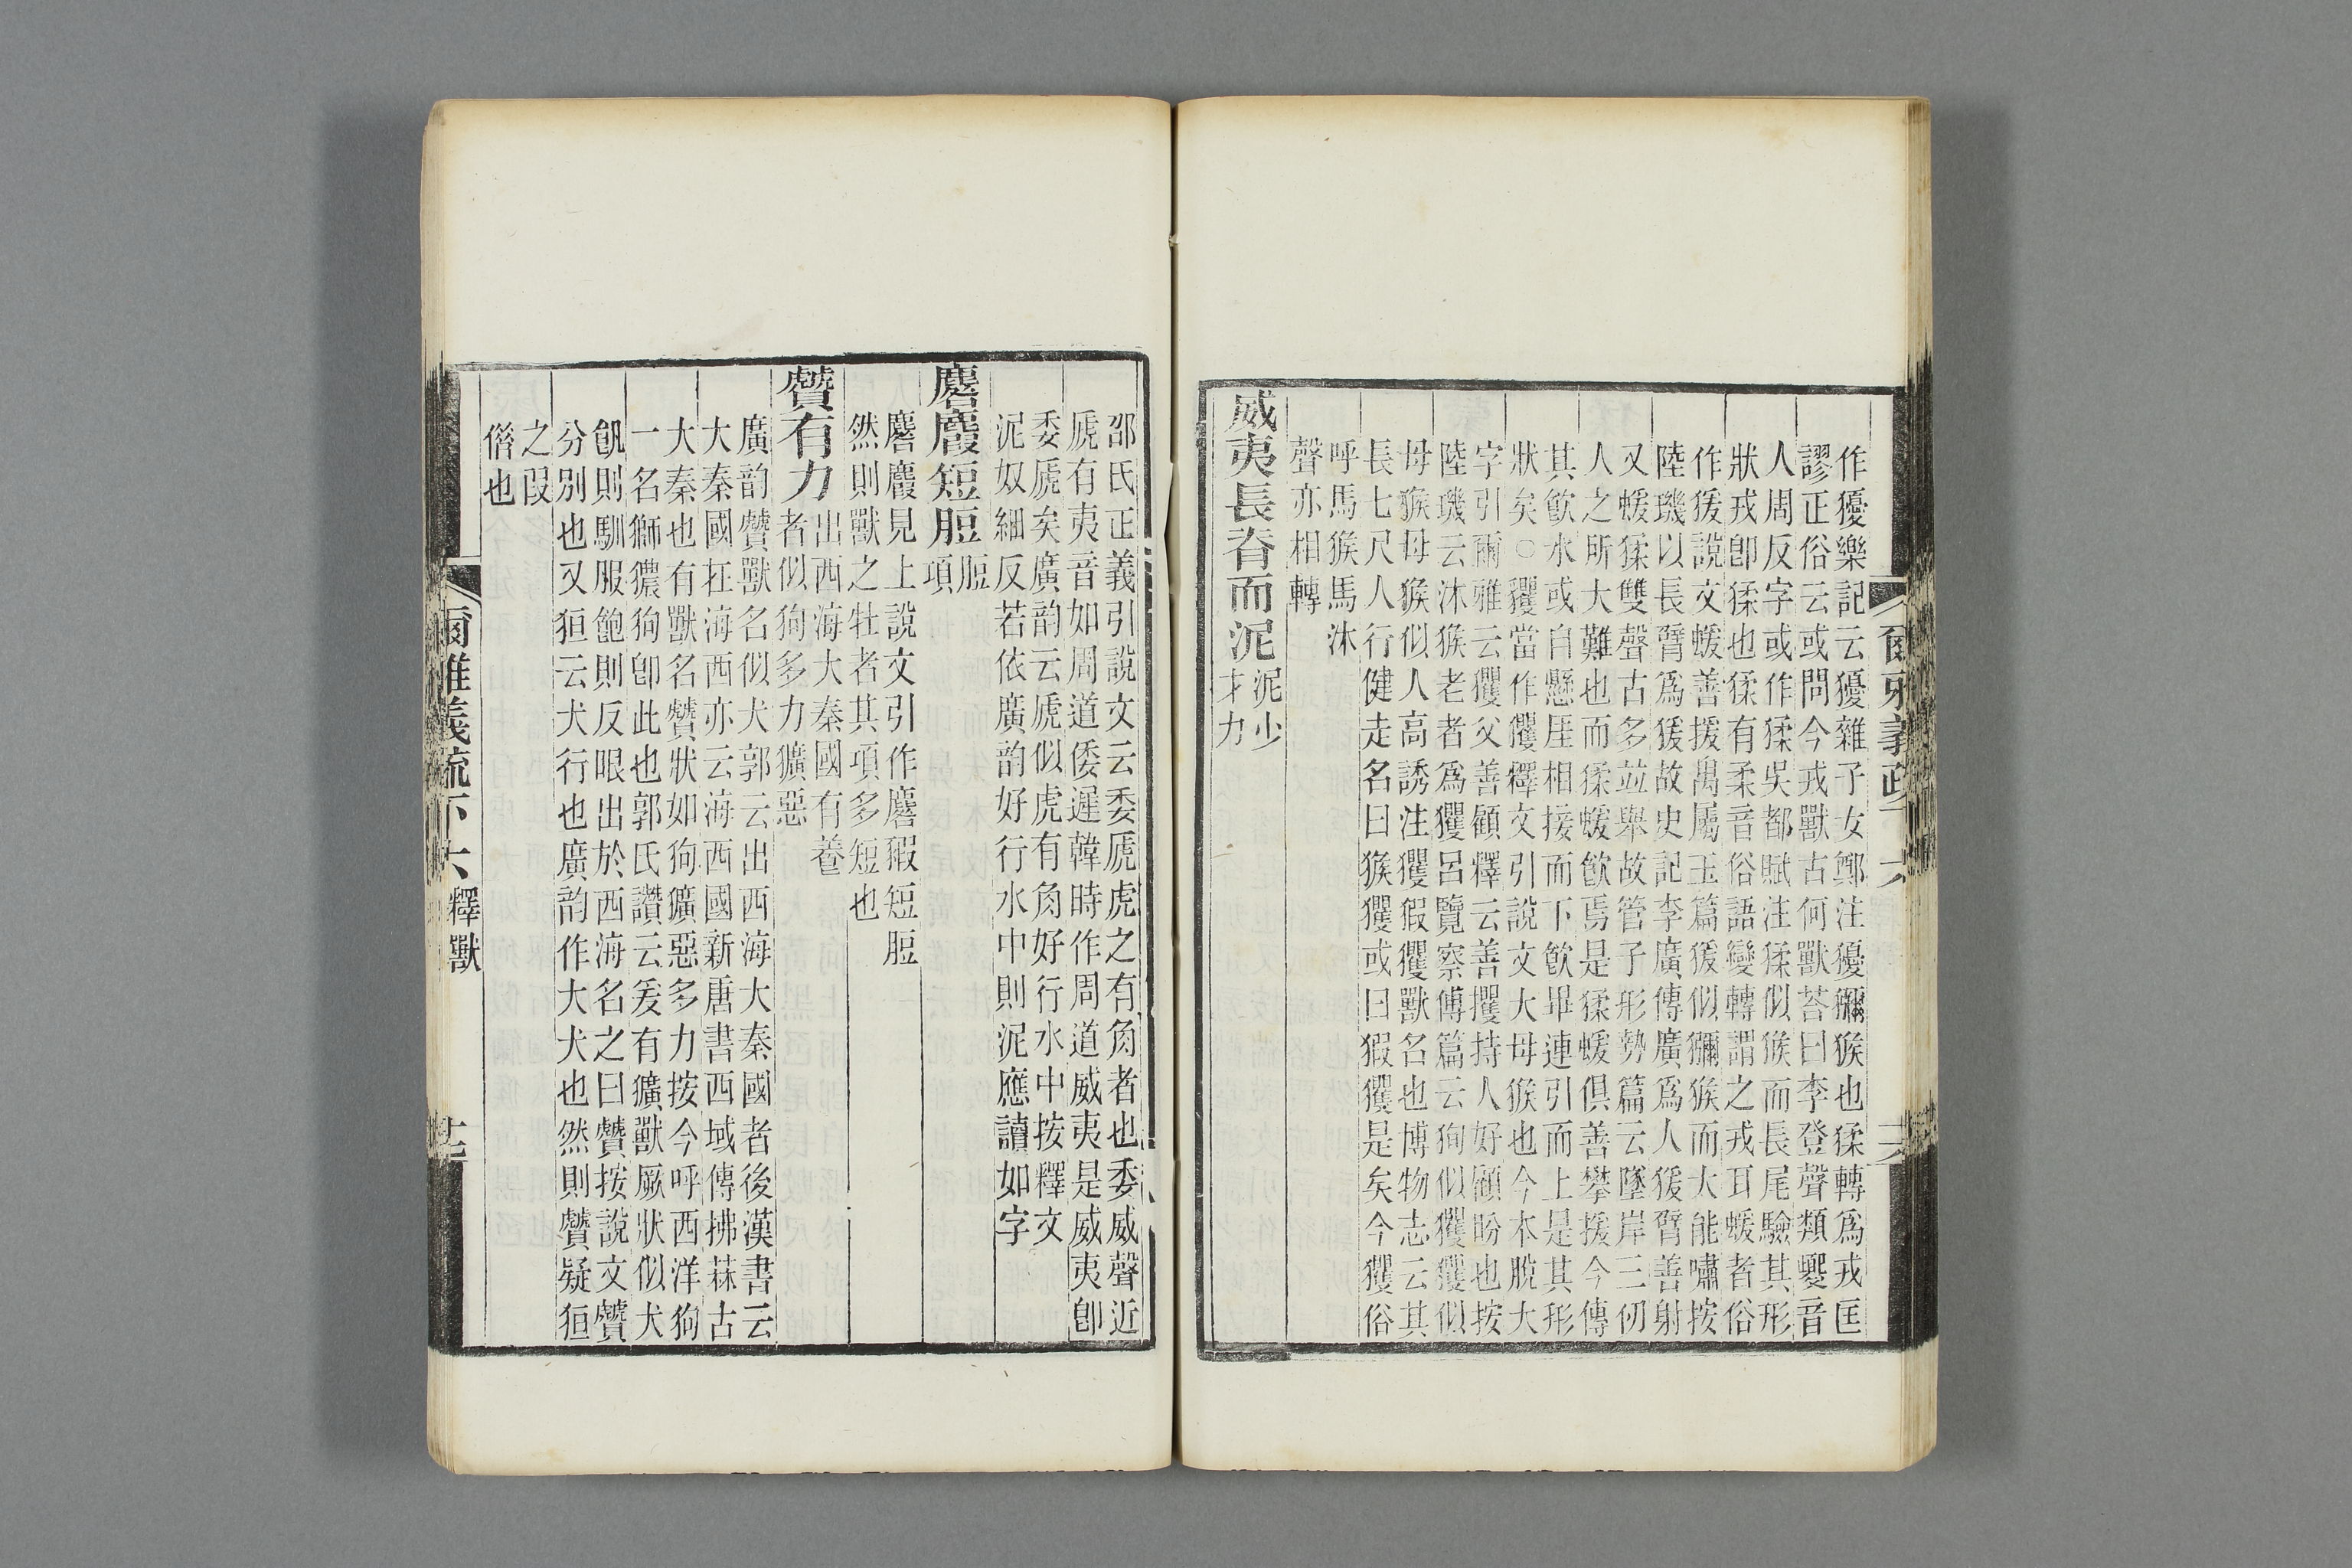 作獶樂記云獶雜子女鄭注獶獼猴也猱轉爲戎匡
謬正俗云或問今戎獸古何獸荅曰李登聲類㺜音
人周反字或作猱吳都賦注猱似猴而長尾驗其形
狀戎卽猱也猱有柔音俗語變轉謂之戎耳蝯者俗
作猨說文蝯善援禺屬玉篇猨似獼猴而大能嘯按
陸璣以長臂爲猨故史記李廣傳廣爲人猨臂善射
又蝯猱雙聲古多竝舉故管子形勢篇云墜岸三仞
人之所大難也而猱蝯飮焉是猱蝯俱善攀援今傳
其飮水或自懸厓相接而下飮畢連引而上是其形
狀矣○玃當作㺢釋文引說文大母猴也今本脫大
字引爾雅云玃父善顧釋云善攫持人好顧盼也按
陸璣云沐猴老者爲玃呂覽察傳篇云狗似玃玃似
母猴母猴似人高誘注玃猳玃獸名也博物志云其
長七尺人行健走名曰猴玃或曰猳玃是矣今玃俗
呼馬猴馬沐
聲亦相轉
威夷長脊而泥泥少
才力
邵氏正義引說文云委虒虎之有角者也委威聲近
虒有夷音如周道倭遲韓詩作周道威夷是威夷卽
委虒矣廣韵云虒似虎有角好行水中按釋文
泥奴細反若依廣韵好行水中則泥應讀如字
麔麚短脰脰
項
麔麚見上說文引作麔猳短脰
然則獸之牡者其項多短也
贙有力出西海大秦國有養
者似狗多力獷惡
廣韵贙獸名似犬郭云出西海大秦國者後漢書云
大秦國在海西亦云海西國新唐書西域傳拂菻古
大秦也有獸名贙狀如狗獷惡多力按今呼西洋狗
一名獅獚狗卽此也郭氏讚云爰有獷獸厥狀似犬
飢則馴服飽則反眼出於西海名之曰贙按說文贙
分別也又狟云犬行也廣韵作大犬也然則贙疑狟
之叚
借也
爾雅義疏下六釋獸 廿一